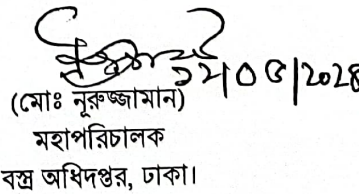 ১২|০৫|২০২৪
(মোঃ নূরুজ্জামান)
মহাপরিচালক
বস্ত্র অধিদপ্তর, ঢাকা।